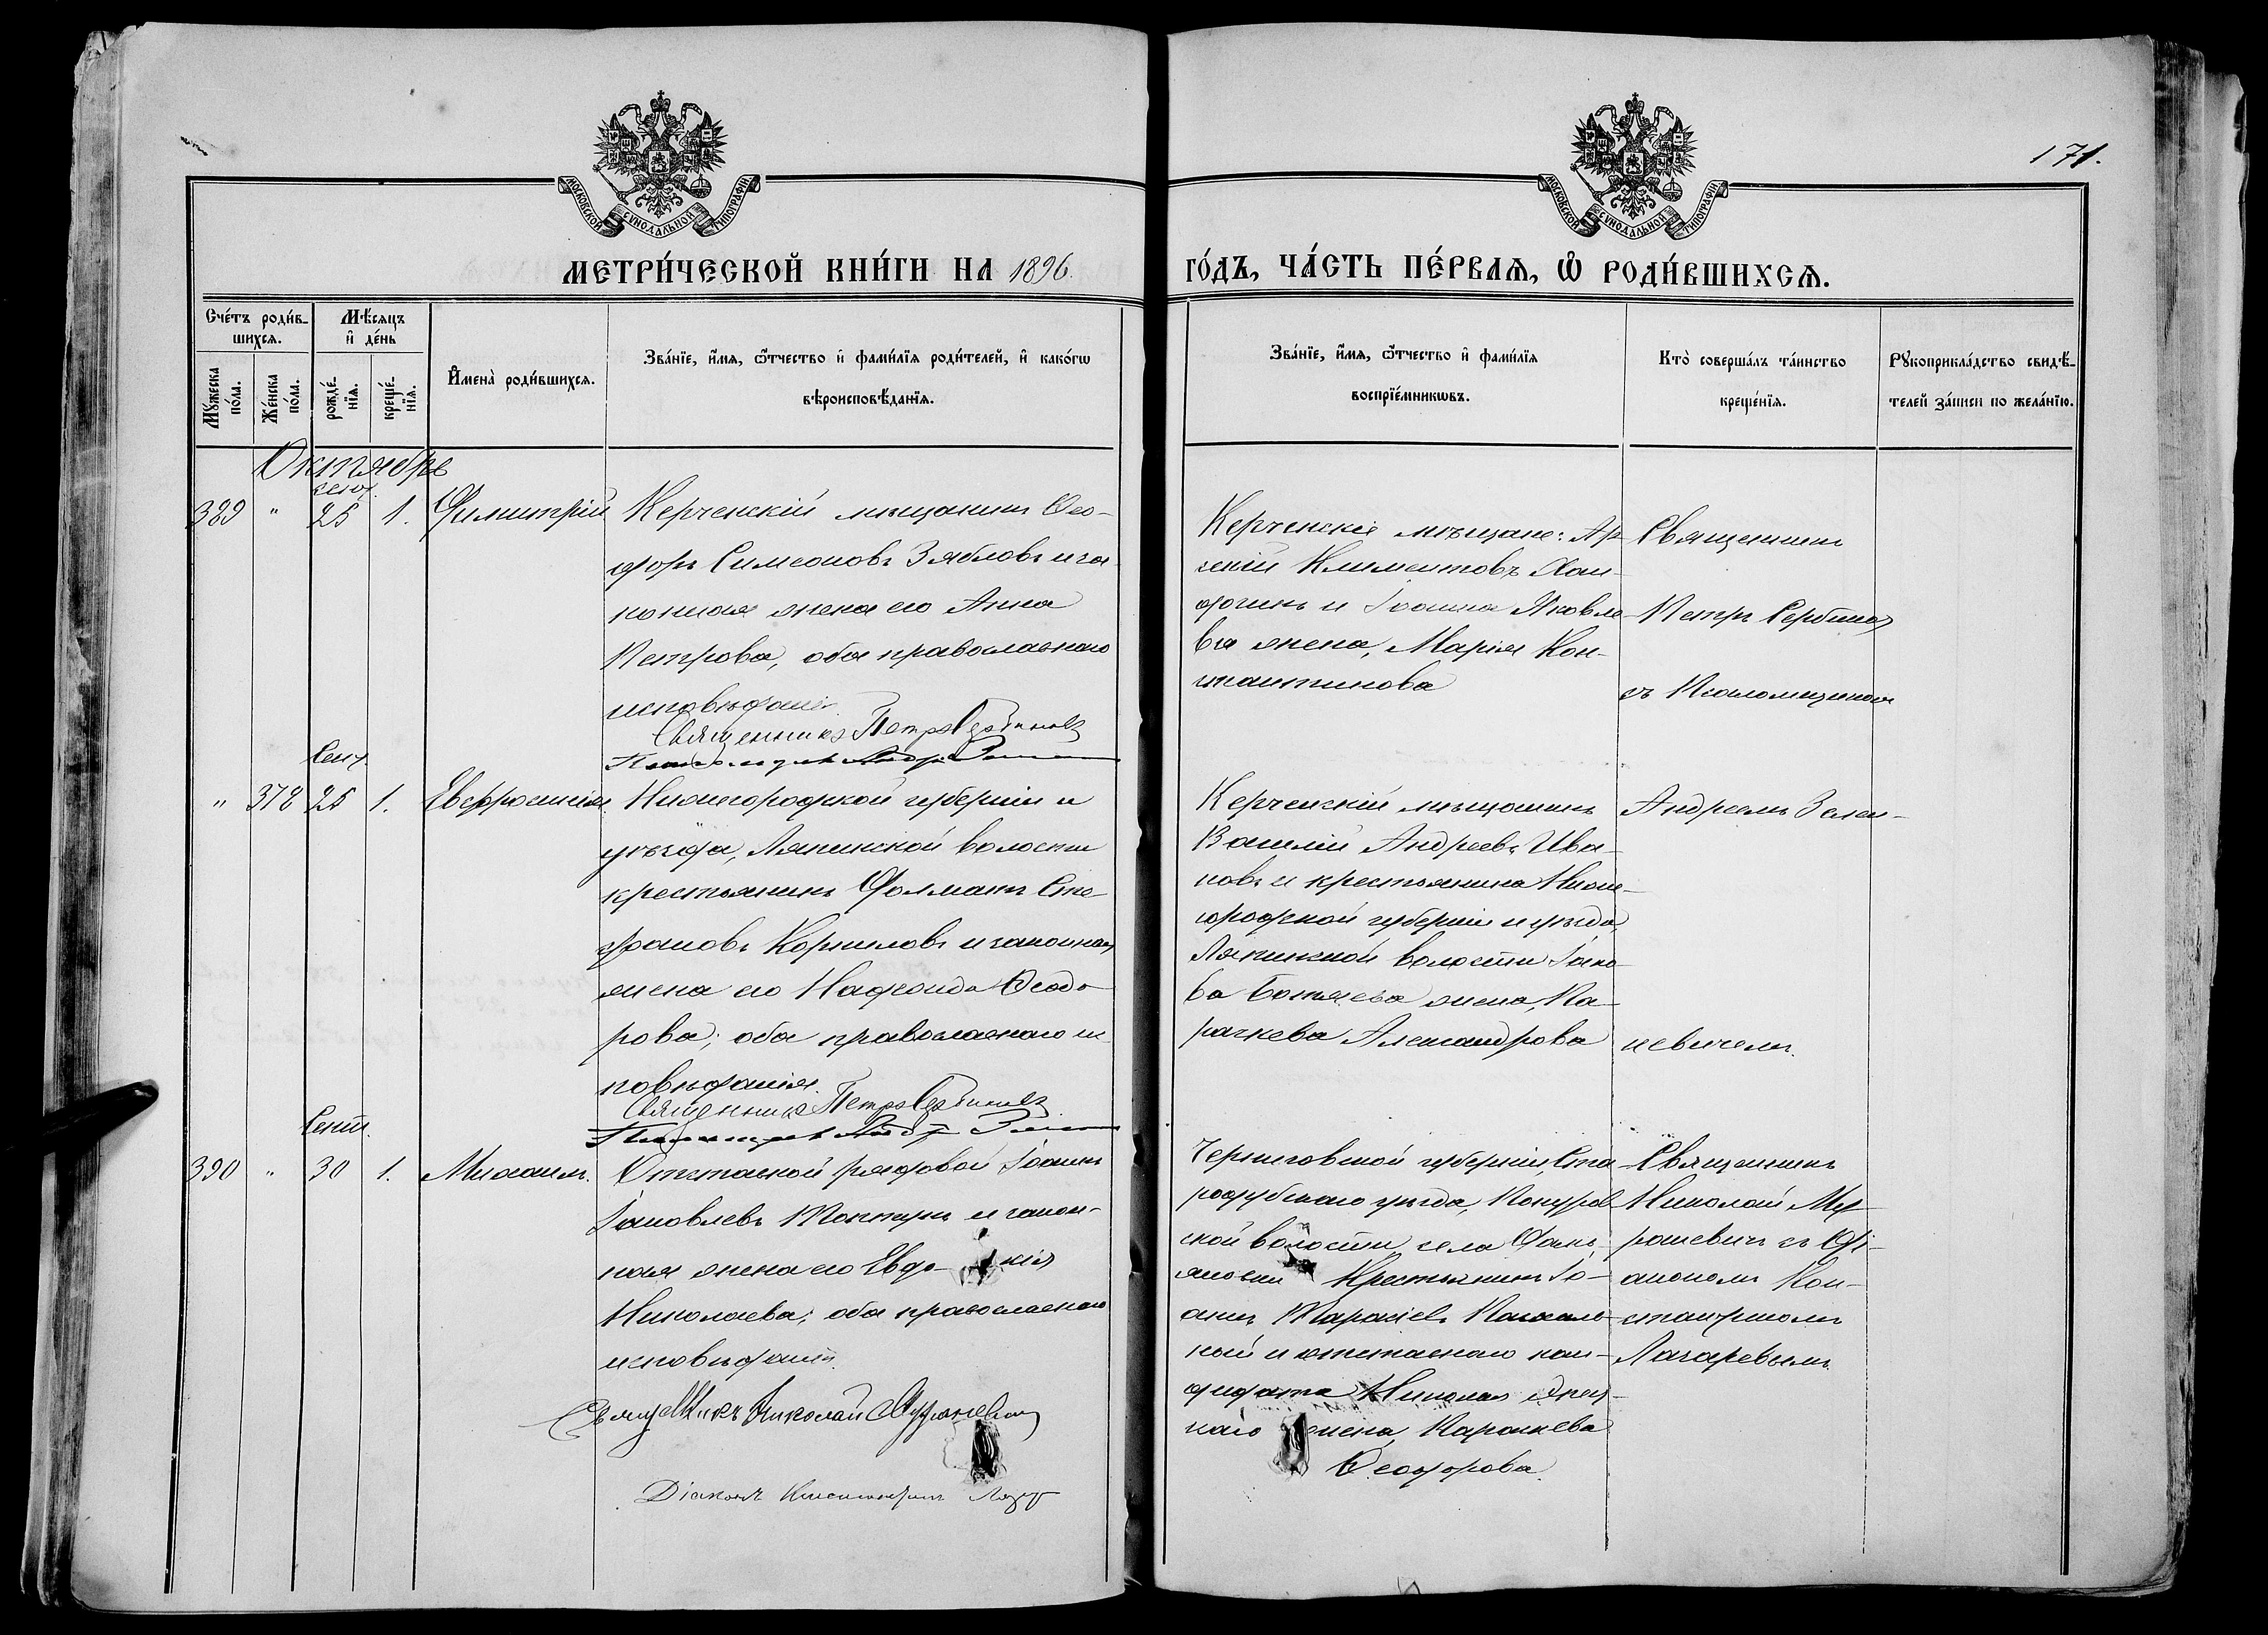 171.
МОСКОВСКОЙ СѴНОДАЛЬНОЙ ТИПОГРАФІИ
МОСКОВСКОЙ СѴНОДАЛЬНОЙ ТИПОГРАФІИ
МЕТРИ́ЧЕСКОЙ КНИ́ГИ НА 1896.
ГО́ДЪ, ЧА́СТЬ ПЕ́РВАѦ, Ѡ҆ РОДИ́ВШИХСѦ.
Сче́тъ роди́в-
шихсѧ.
Мꙋ́жеска
по́ла.
Же́нска
по́ла.
Мѣ́сѧцъ
и҆ де́нь
рожде́-
нїѧ.
креще́-
нїѧ.
И҆мена̀ роди́вшихсѧ.
Зва́нїе, и҆́мѧ, ѻ҆́тчество и҆ фами́лїѧ роди́телей, и҆ како́гѡ
вѣроисповѣ́данїѧ.
Зва́нїе, и҆́мѧ, ѻ҆́тчество и҆ фами́лїѧ
воспрїе́мникѡвъ.
Кто̀ соверша́лъ та́инство
креще́нїѧ.
Рꙋкоприкла́дство свидѣ́-
телей за́писи по жела́нїю.
Октябрь
сент.
389 " 25 1. Димитрій
Керченскій мѣщанинъ Ѳео-
доръ Симеоновъ Зябловъ и за-
конная жена его Анна
Петрова, оба православнаго
исповѣданія
Священникъ Петръ Сербиновъ
Керченскіе мѣщане: Ар-
сеній Климентовъ
и Іоанна Яковле-
ва жена, Марія Кон-
стантинова
Священникъ
Петръ Сербиновъ
съ Псаломщикомъ
Сент.
" 378 25 1. Евфросинія.
Нижегородской губерніи и
уѣзда, Лапинской волости
крестьянинъ Долматъ Сте-
фановъ Корниловъ и законная
жена его Надежда Ѳеодо-
рова; оба православнаго ис-
повѣданія.
Священникъ Петръ Сербиновъ
Керченскій мѣщанинъ
Василій Андреевъ Ива-
новъ и крестьянина Ниже-
городской губерніи и уѣзда,
Лапинской волости Іако-
ва жена, Па-
раскева Александрова
Андреемъ Зелен-
кевичемъ.
Сент.
390 " 30 1. Михаилъ.
Отставной рядовой Іоаннъ
Іаковлевъ и закон-
ная жена его Евдокія
Николаева; оба православнаго
исповѣданія.
Священникъ Николай Мураневичъ
Діаконъ Константинъ Лазар
Черниговской губерніи, Ста-
родубскаго уѣзда, Понуров-
ской волости села
крестьянинъ Іо-
аннъ
и отставнаго кан-
дидата Николая
жена Параскева
Ѳеодорова.
Священникъ
Николай Му-
раневичъ съ Ді-
акономъ Кон-
стантиномъ
Лазаревымъ.